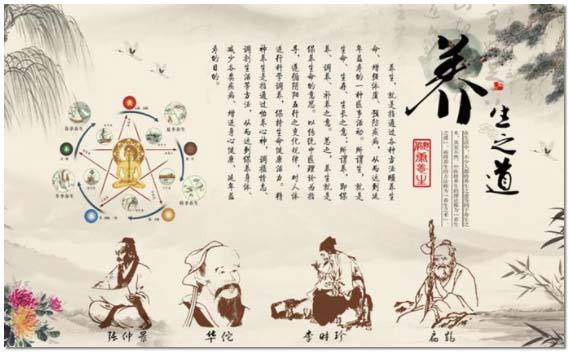 养
生之道
养生，就是指通过各种方法颐养生
命、增强体质、预防疾病，从而达到延
年益寿的一种医事活动。所谓生，就是
生命、生存、生长之意；所谓养，即保
养、调养、补养之意。总之，养生就是
保养生命的意思。以传统中医理论为指
导，遵循阴阳五行之变化规律，对人体
进行科学调养，保持生命健康活力。精
神养生是指通过怡养心神、调摄情志、
调剂生活等方法，从而达到保养身体、
减少各类疾病、增进身心健康、延年益
寿的目的。
张仲景
华佗
李时珍
扁鹊